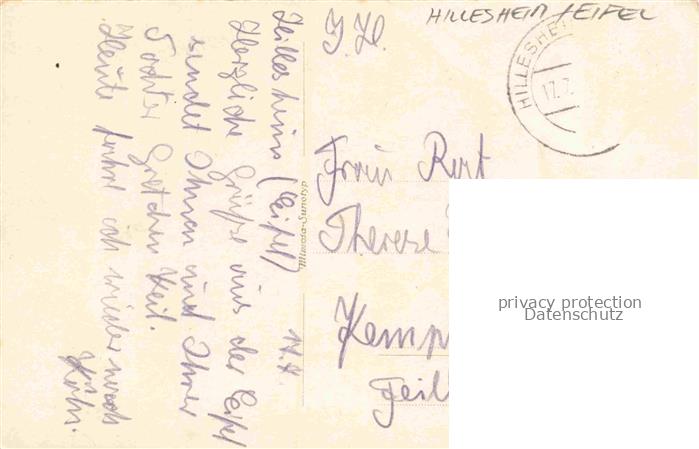 HILLESHEIM / EIFEL
HILLESHE
17.7
Hillesheim (Eifel)
Herzliche Grüße aus der Eifel
sendet Ihnen und Ihrer
Tochter Gretchen Keil.
Heute fahre ich wieder nach
Köln.
Mimosa-Sunotyp
Frau
Therese
Kemp
privacy protection
Datenschutz